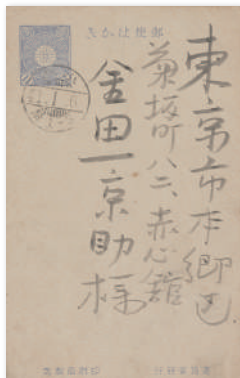 郵便はかき
東京市本郷区
菊坂町八二、赤心館
金田一京助様